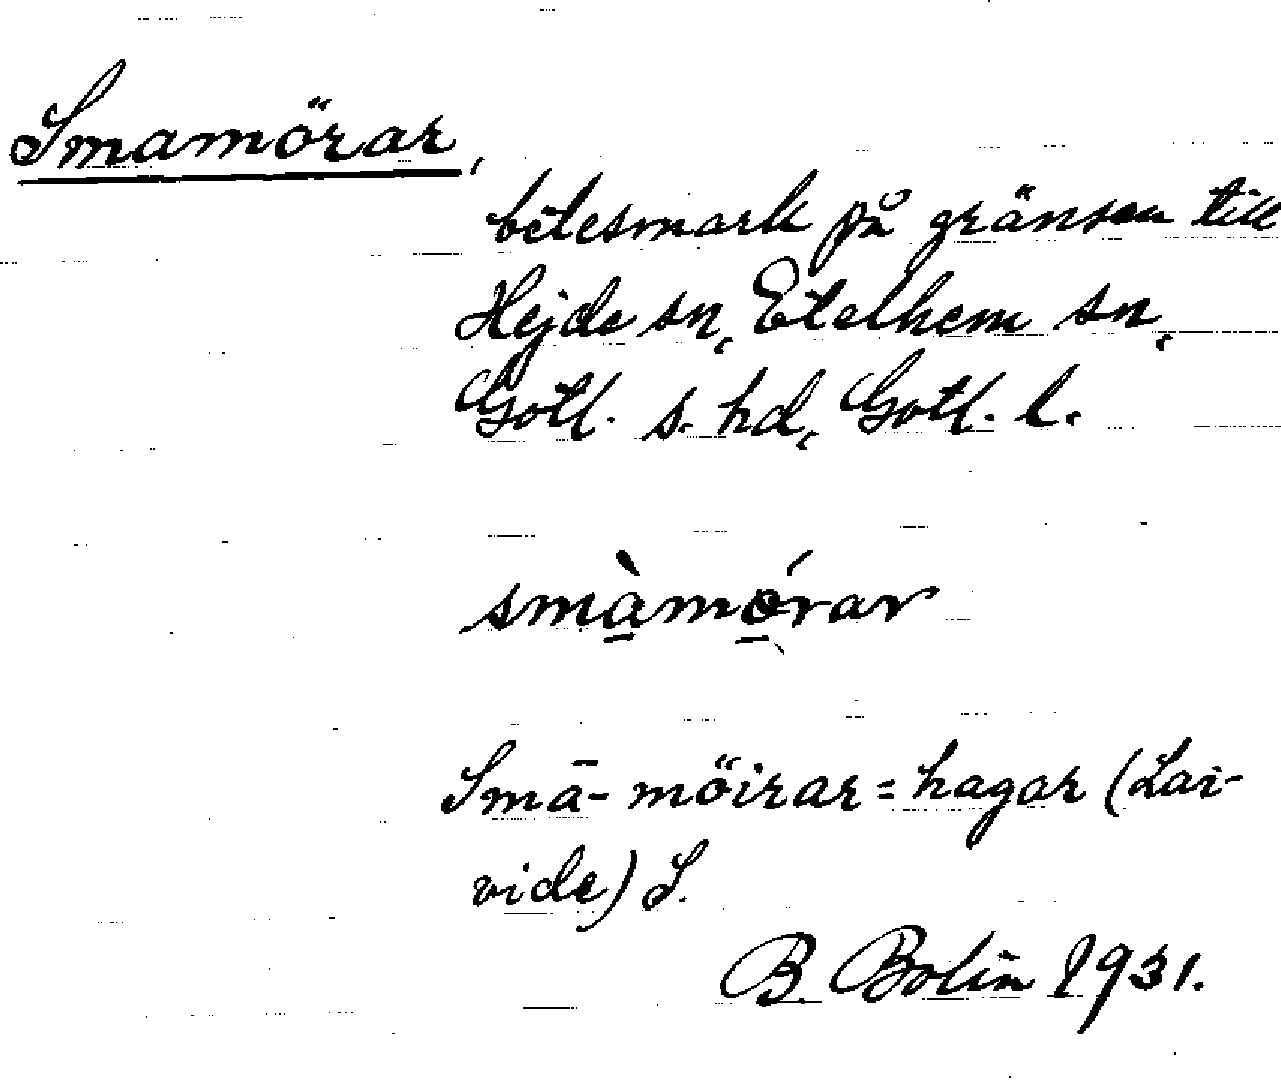 Smamörar,
betesmark på gränsen till
Hejde sn, Etelhem sn,
Gotl. s. hd, Gotl. l.
smàmǿrar
Smā- möirar = hagar (Lai-
vide) S.
B. Bolin 1931.